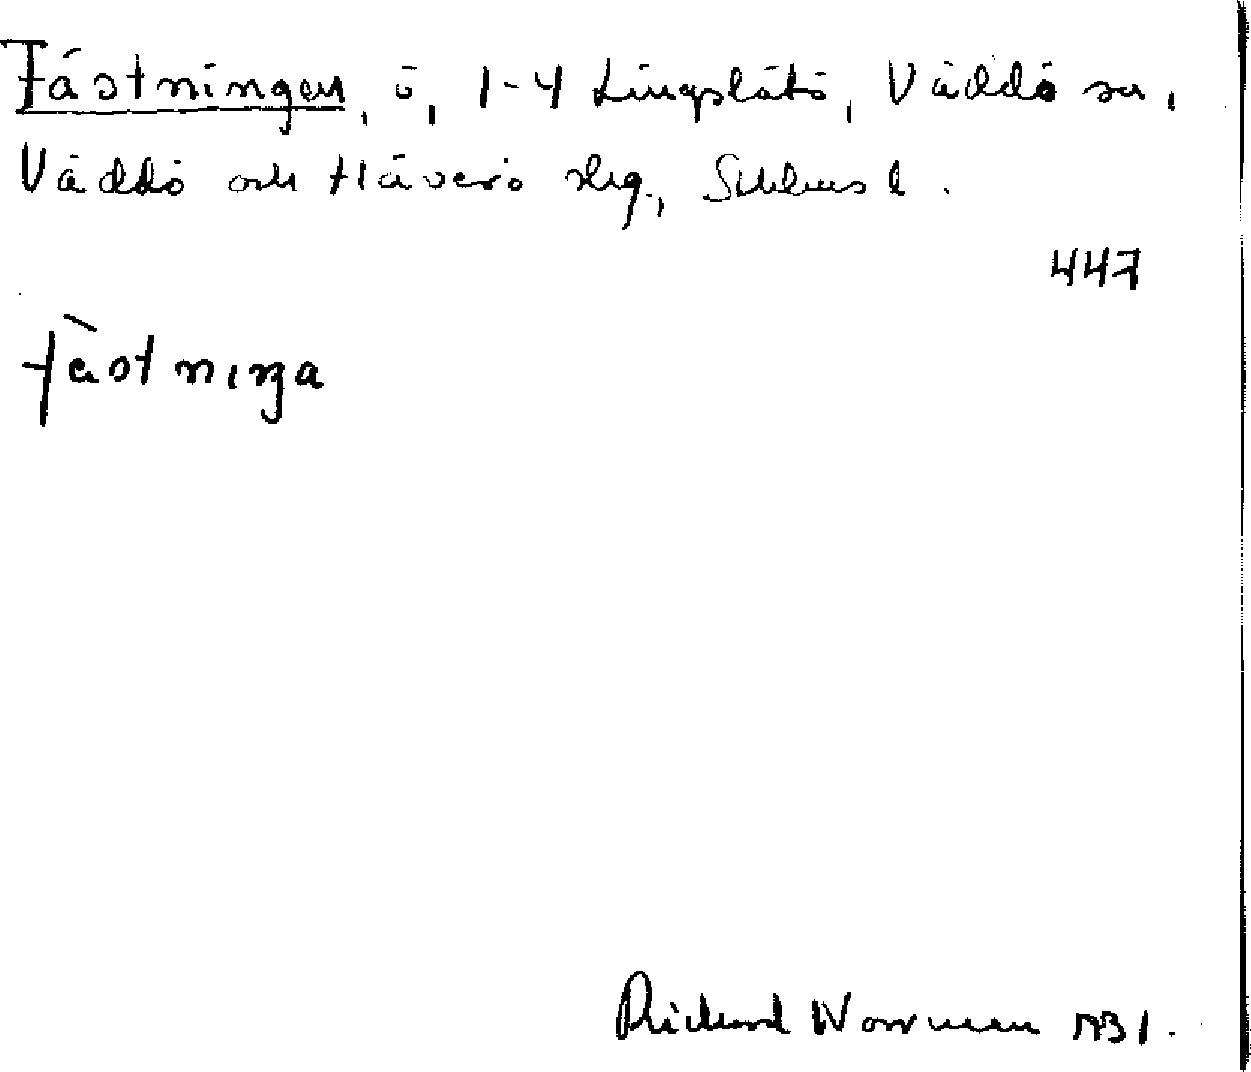 Fästningen, ö, 1-4 Lingslätö, Väddö sn,
Väddö och Häverö skg., Sthlms l.
447
fàstniŋa
Rickard Norrman 1931.